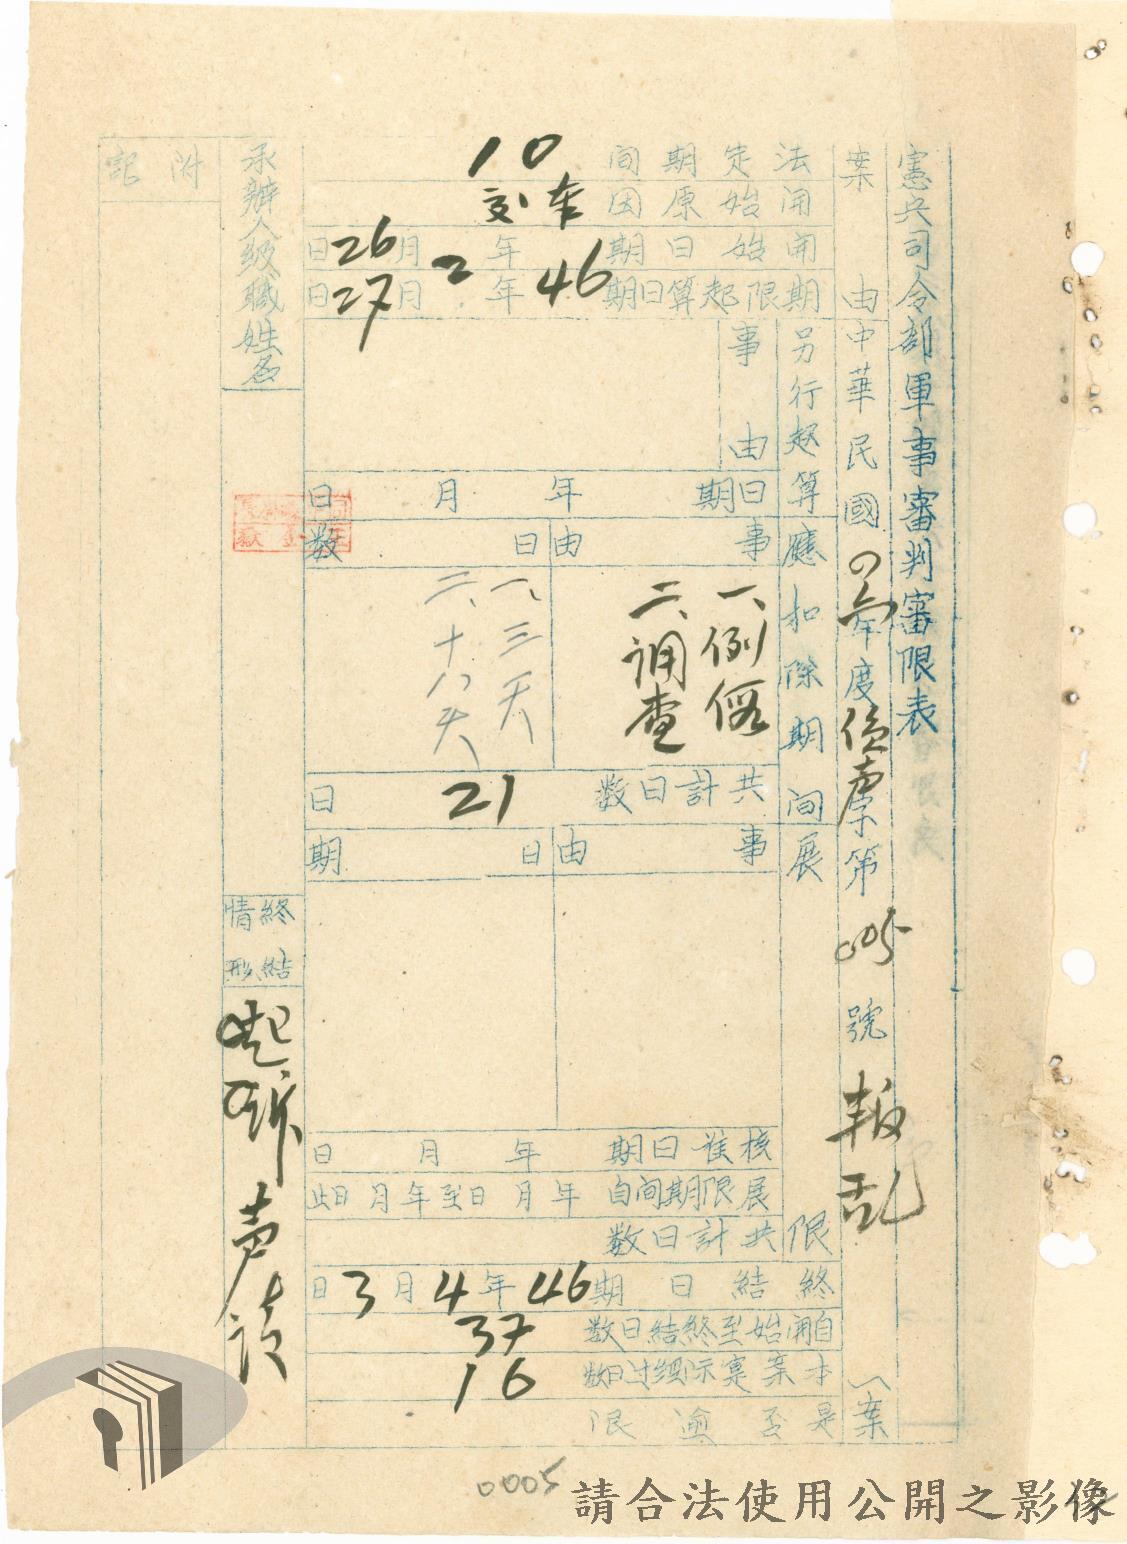 憲兵司令部軍事審判審限表
案由
中華民國四六年度偵声字第005號叛乱（案
法定期間
10
開始原因
交本
開始日期
年2月26日
期限起算日期
46年月27日
另行起算
事由
日期
年月日
應扣除期間
事由
日数
一、例假
二、調查
一、三天
二、十八天
共計日数
21日
展限
事由
日期
核准日期
年月日
展限期間自
年月日至年月日止
共計日数
終結日期
46年4月3日
自開始至終結日数
37
本案實际經过日数
16
是否逾限
承辦人級職姓名
終結情形
起訴声請
附記
0005
請合法使用公開之影像